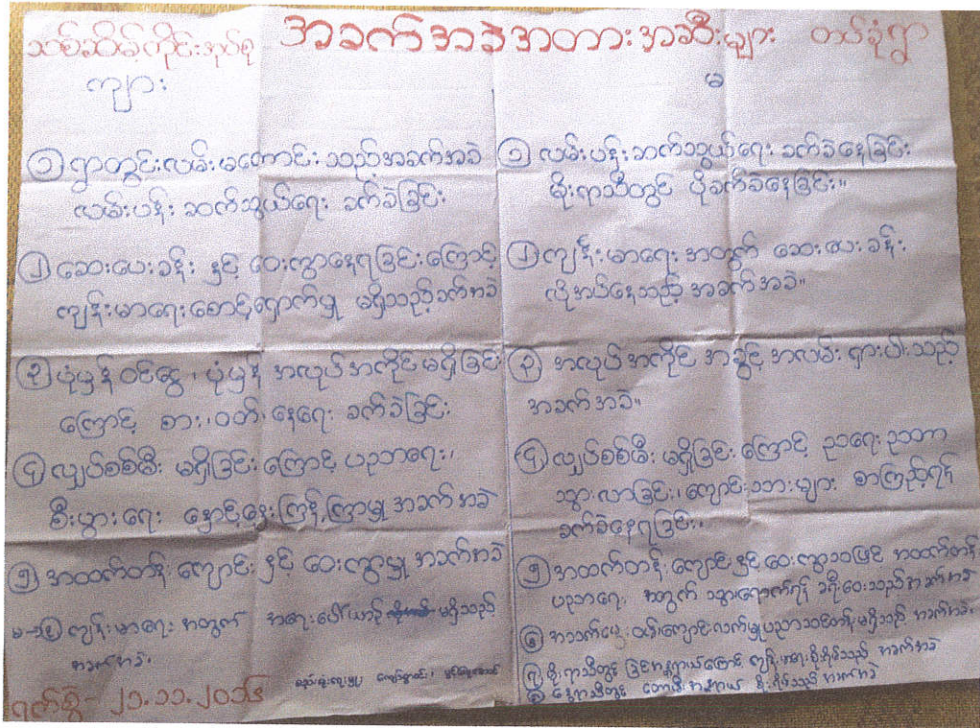 သစ်ဆိမ့်ကိုင်းအုပ်စု အခက်အခဲအတားအဆီးများ တပ်ခုံရွာ
ကျား
၁ ရွာတွင်းလမ်းမကောင်းသည့်အခက်အခဲ
လမ်းပန်း ဆက်သွယ်ရေး ခက်ခဲခြင်း
၂ ဆေးပေးခန်း နှင့် ဝေးကွာနေရခြင်းကြောင့်
ကျန်းမာရေးစောင့်ရှောက်မှု မရှိသည့်ခက်အခဲ
၃ ပုံမှန်ဝင်ငွေ၊ ပုံမှန် အလုပ်အကိုင်မရှိခြင်း
ကြောင့် စား၊ဝတ်၊နေရေး ခက်ခဲခြင်း
၄ လျှပ်စစ်မီး မရှိခြင်းကြောင့် ပညာရေး၊
စီးပွားရေး နှောင့်နှေးကြန့်ကြာမှု အခက်အခဲ
၅ အထက်တန်းကျောင်း နှင့် ဝေးကွာမှု အခက်အခဲ
ကျန်းမာရေး အတွက် အရေးပေါ်ယာဉ် မရှိသည့်
အခက်အခဲ၊
ရက်စွဲ - ၂၁.၁၁.၂၀၁၄
မ
၁ လမ်းပန်းဆက်သွယ်ရေး ခက်ခဲနေခြင်း
မိုးရာသီတွင် ပိုခက်ခဲနေခြင်း။
၂ ကျန်းမာရေး အတွက် ဆေးပေးခန်း
လိုအပ်နေသည့် အခက်အခဲ။
၃ အလုပ်အကိုင် အခွင့် အလမ်း ရှားပါးသည့်
အခက်အခဲ။
၄ လျှပ်စစ်မီး မရှိခြင်းကြောင့် ညရေးညတာ
သွားလာခြင်း၊ ကျောင်းသားများ စာကြည့်ရန်
ခက်ခဲနေရခြင်း၊
၅ အထက်တန်းကျောင်းနှင့် ဝေးကွာသဖြင့် အထက်တန်း
ပညာရေး အတွက် သွားရောက်ရန် ခရီးဝေးသည့်အခက်အခဲ
၆ အသက်မွေးဝမ်းကျောင်းလက်မှုပညာသင်တန်းမရှိသည့် အခက်အခဲ
၇ မိုးရာသီတွင် ခြင်အန္တရာယ်ကြောင့် ကျန်းမာရေးစိုးရိမ်သည့် အခက်အခဲ
၈ နွေရာသီတွင် တောမီးအန္တရာယ် စိုးရိမ်သည့် အခက်အခဲ